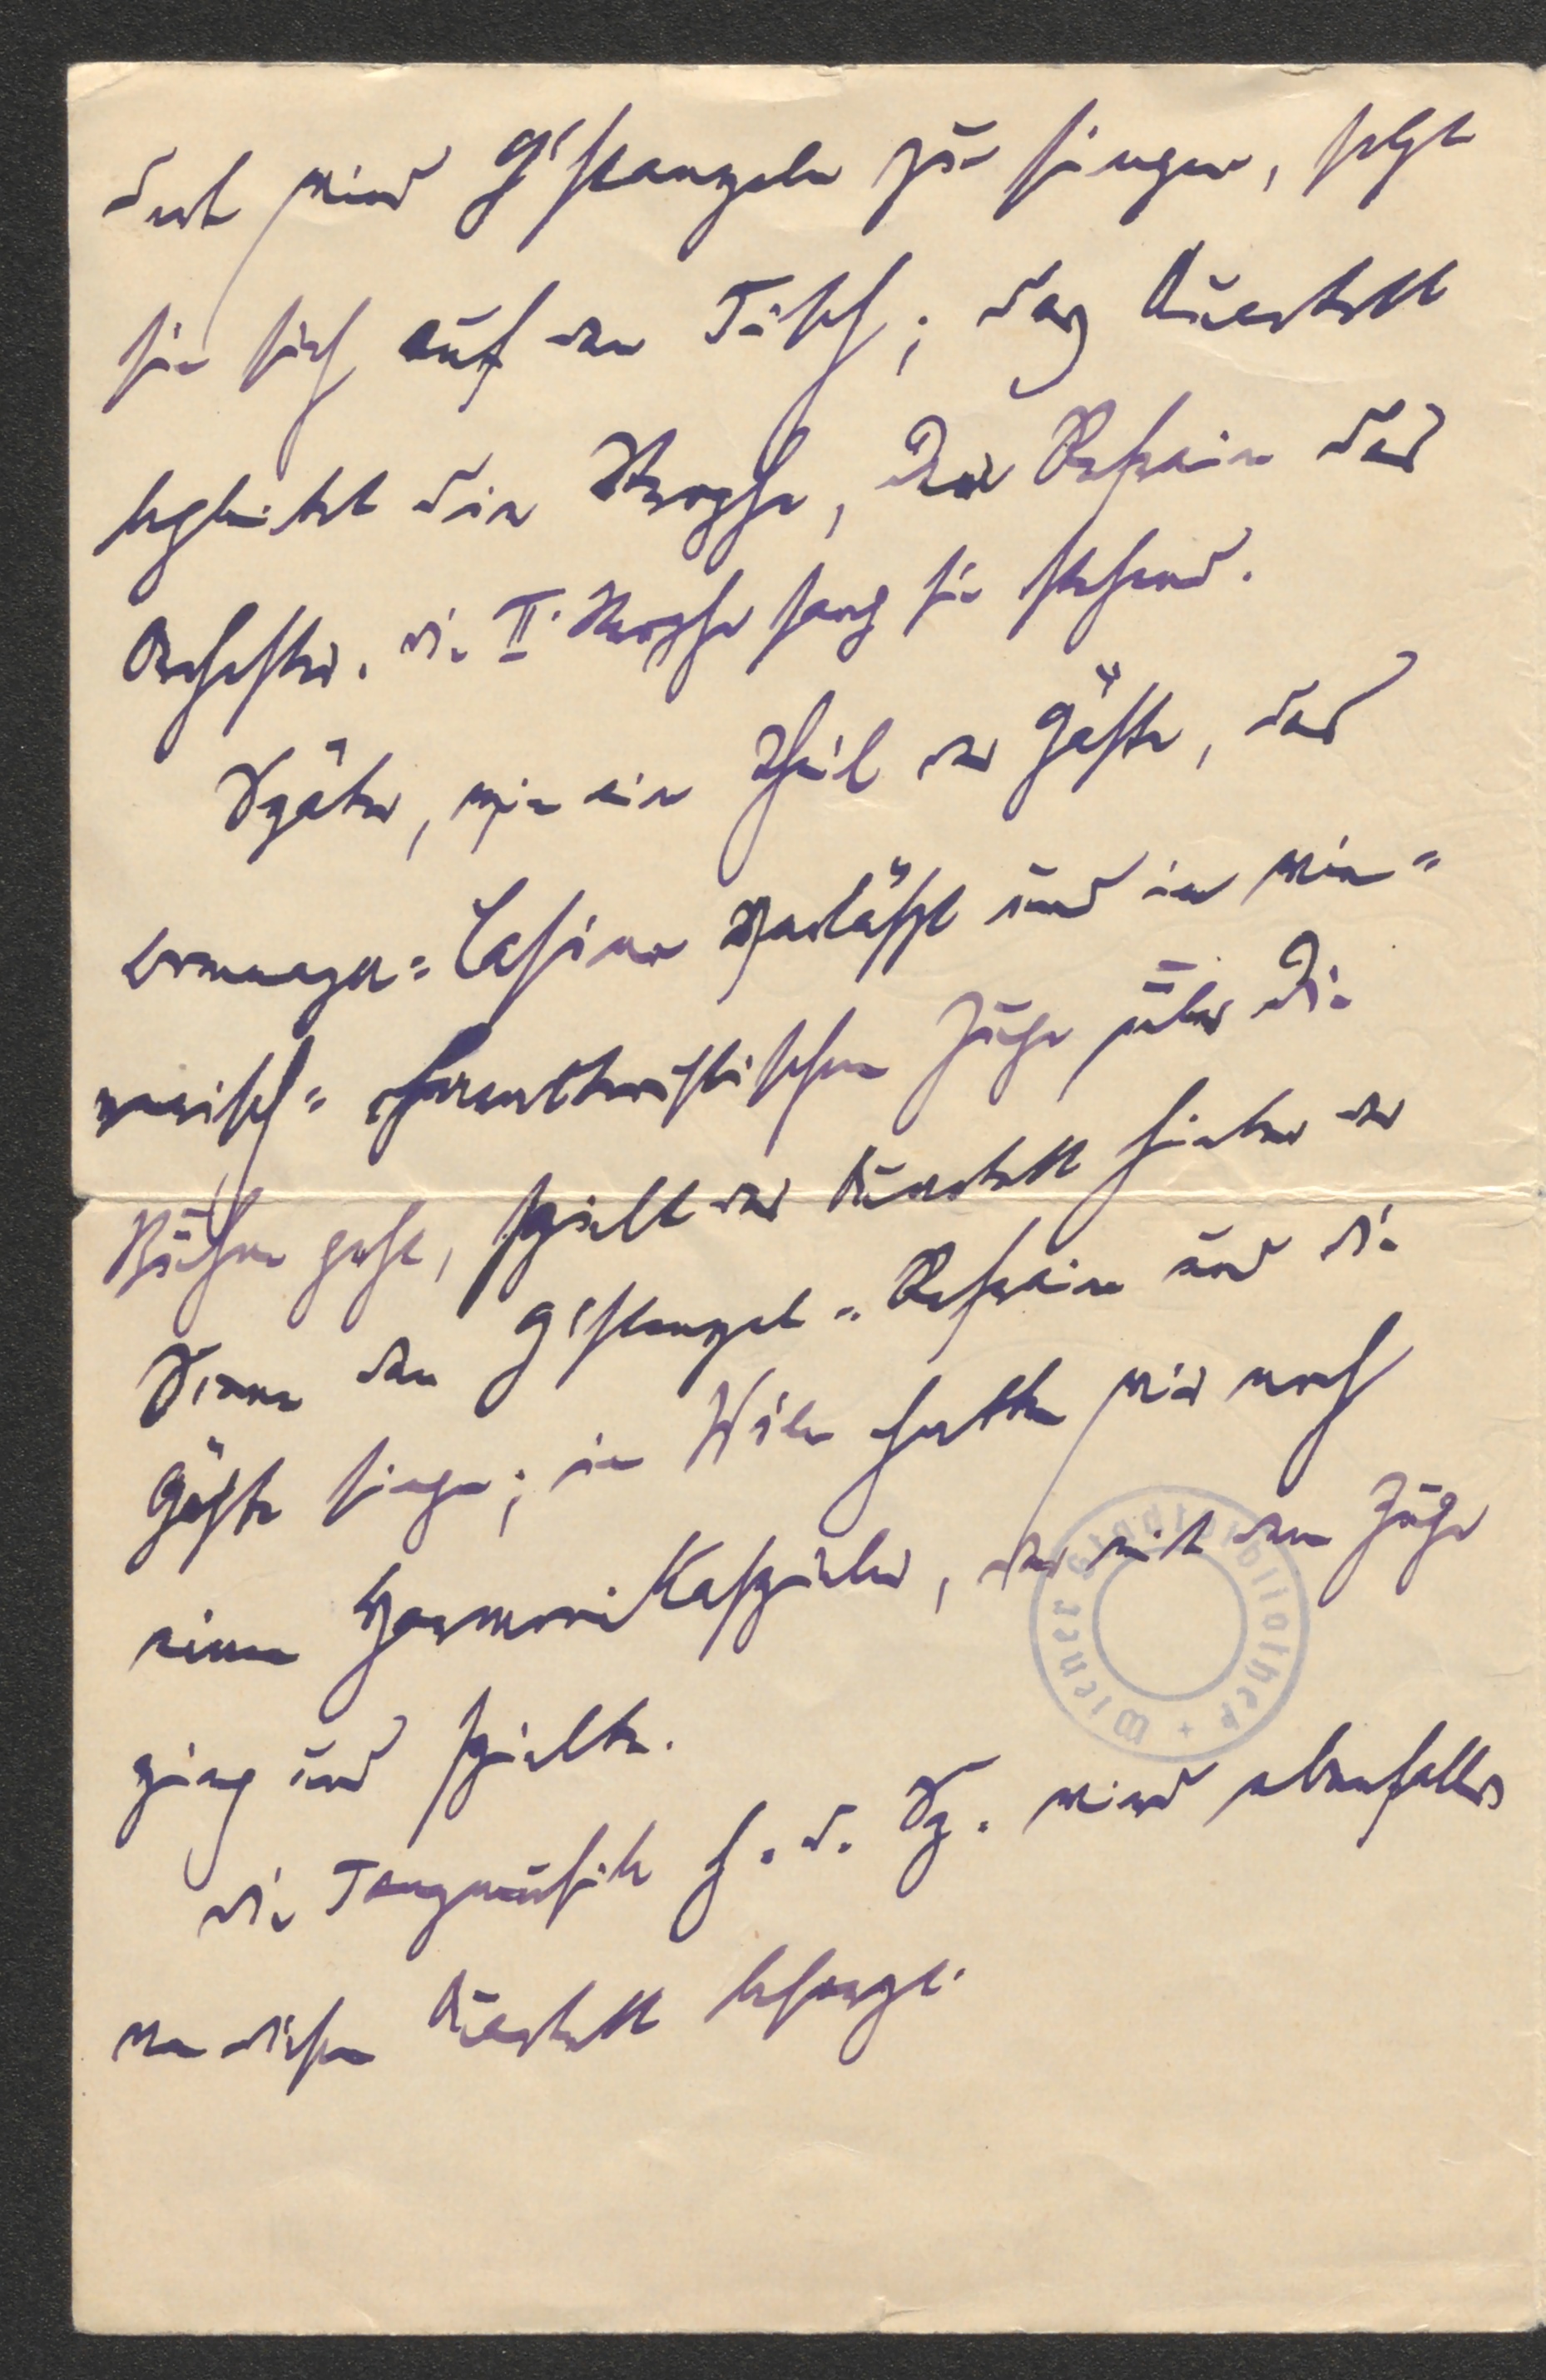 dert wird G'stanzeln zu singen, setzt
sie sich auf den Tisch; das Quartett
begleitet die Strophe, den Refrain das
Orchester. die II. Strophe sang sie stehend.
Später, wie ein Theil der Gäste, das
Dommayer-Casino verläßt und in wie=
nerisch-charakteristischem Zuge über die
Bühne geht, spielt das Quartett hinter der
Scene den G'stanzel-Refrain und die
Gäste singen; in Wien hatten wir noch
einen Harmonikaspieler, der mit dem Zuge
ging und spielte.
die Tanzmusik h. d. Sz. wird ebenfalls
von diesem Quartett besorgt.
Wiener Stadtbibliothek